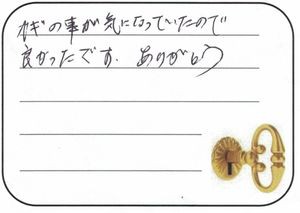 カギの事が気になっていたので
良かったです。ありがとう